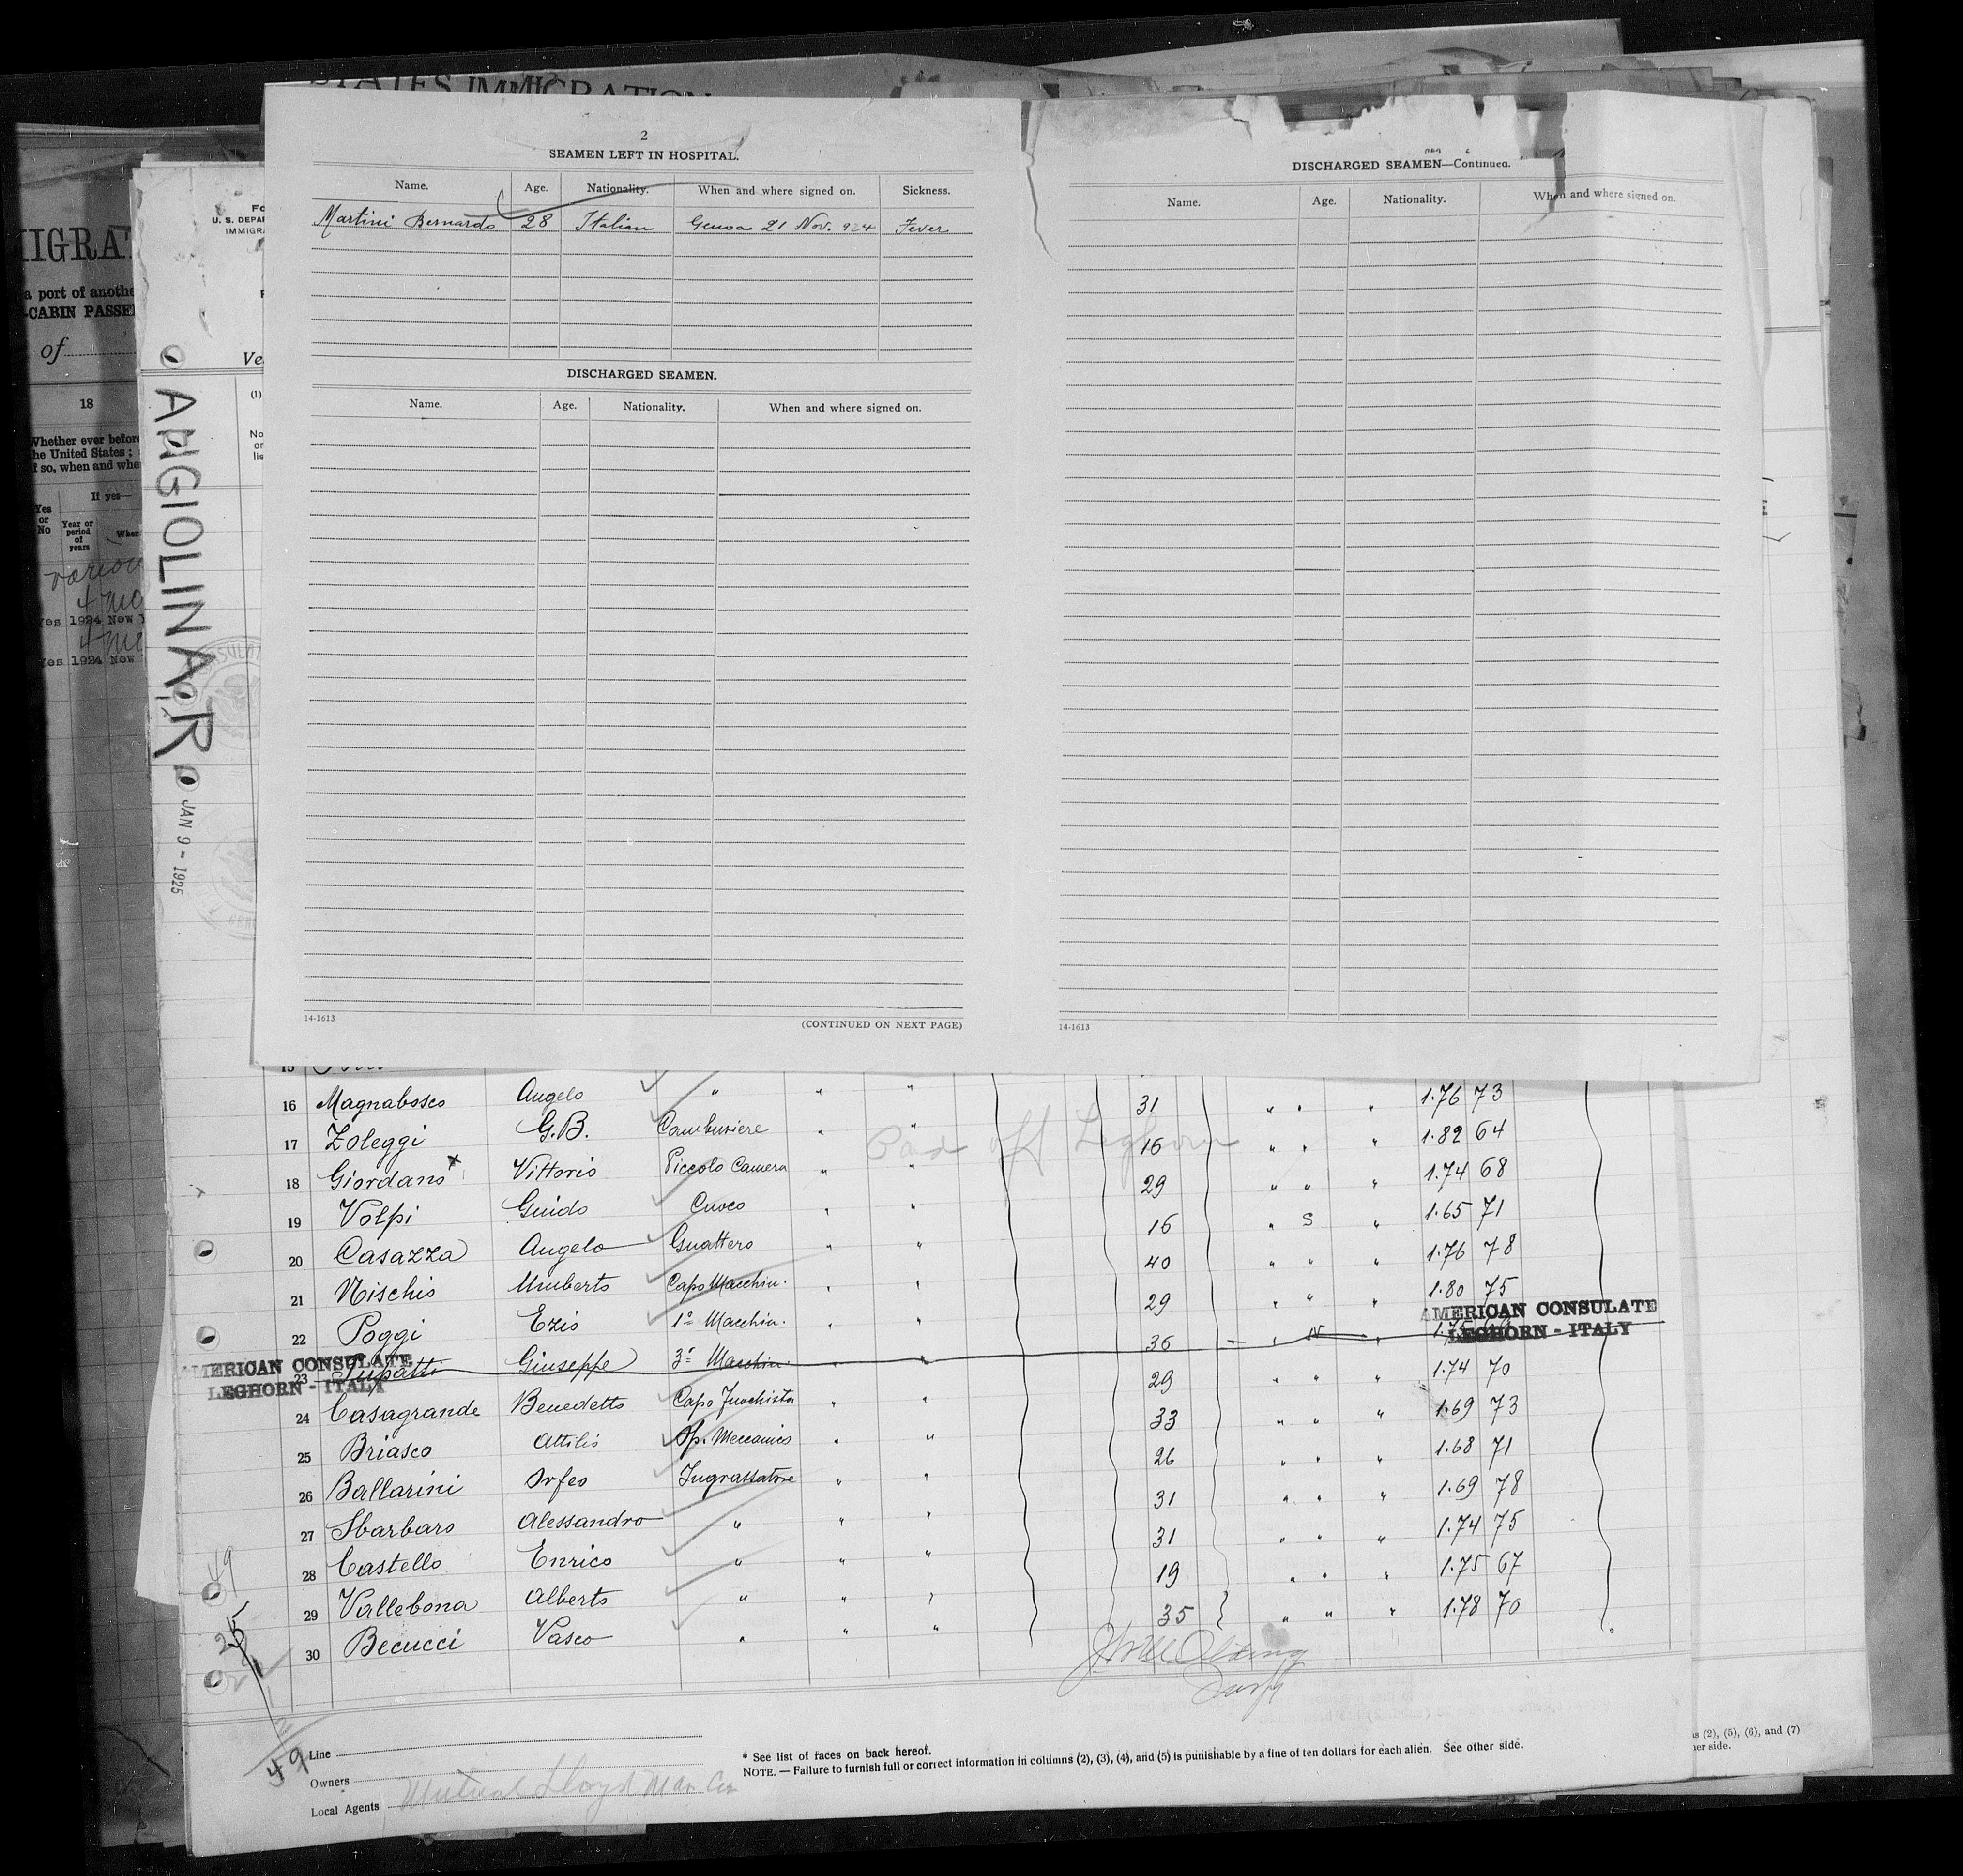 STATES IMMIGRATION
2
SEAMEN LEFT IN HOSPITAL.
Name. Age. Nationality. When and where signed on. Sickness.
Martini Bernardo 28 Italian Genoa 21 Nov. 924 Fever
DISCHARGED SEAMEN.
Name. Age. Nationality. When and where signed on.
14-1613
(CONTINUED ON NEXT PAGE)
DISCHARGED SEAMEN—Continued.
Name. Age. Nationality. When and where signed on.
14-1613
U. S. DEPAR
IMMIGRA
Ve
(1)
No
or
lis
ANGIOLINA R
JAN 9 - 1925
MIGRAT
a port of anothe
-CABIN PASSE
of
18
Whether ever before
the United States;
if so, when and whe
If yes—
Yes
or
No
Year or
period
of
years
Wher
Yes 1924 New Y
Yes 1924 New
15
16 Magnabosco Angelo " " " 31 " " " 1.76 73
17 Zoleggi G.B. Cambusiere " " 16 " " " 1.82 64
Leghorn
18 Giordano x Vittorio Piccolo Camera " " 29 " " " 1.74 68
19 Volpi Guido Cuoco " " 16 " S " 1.65 71
20 Casazza Angelo Guattero " " 40 " " " 1.76 78
21 Nischio Umberto Capo Macchin. " " 29 " " " 1.80 75
22 Poggi Ezio 1° Macchin. " " 36 " "
AMERICAN CONSULATE
LEGHORN - ITALY
AMERICAN CONSULATE
LEGHORN - ITALY
23 Giuseppe 3° Macchin. " " 29 " " " 1.74 70
24 Casagrande Benedetto Capo Fuochista " " 33 " " " 1.69 73
25 Briasco Attilio Op. Meccanico " " 26 " " " 1.68 71
26 Ballarini Orfeo Ingrassatore " " 31 " " " 1.69 78
27 Sbarbaro Alessandro " " " 31 " " " 1.74 75
28 Castello Enrico " " " 19 " " " 1.75 67
29 Vallebona Alberto " " " 35 " " " 1.78 70
30 Becucci Vasco " " "
49
Line
Owners
Local Agents
* See list of races on back hereof.
NOTE. — Failure to furnish full or correct information in columns (2), (3), (4), and (5) is punishable by a fine of ten dollars for each alien. See other side.
s (2), (5), (6), and (7)
her side.